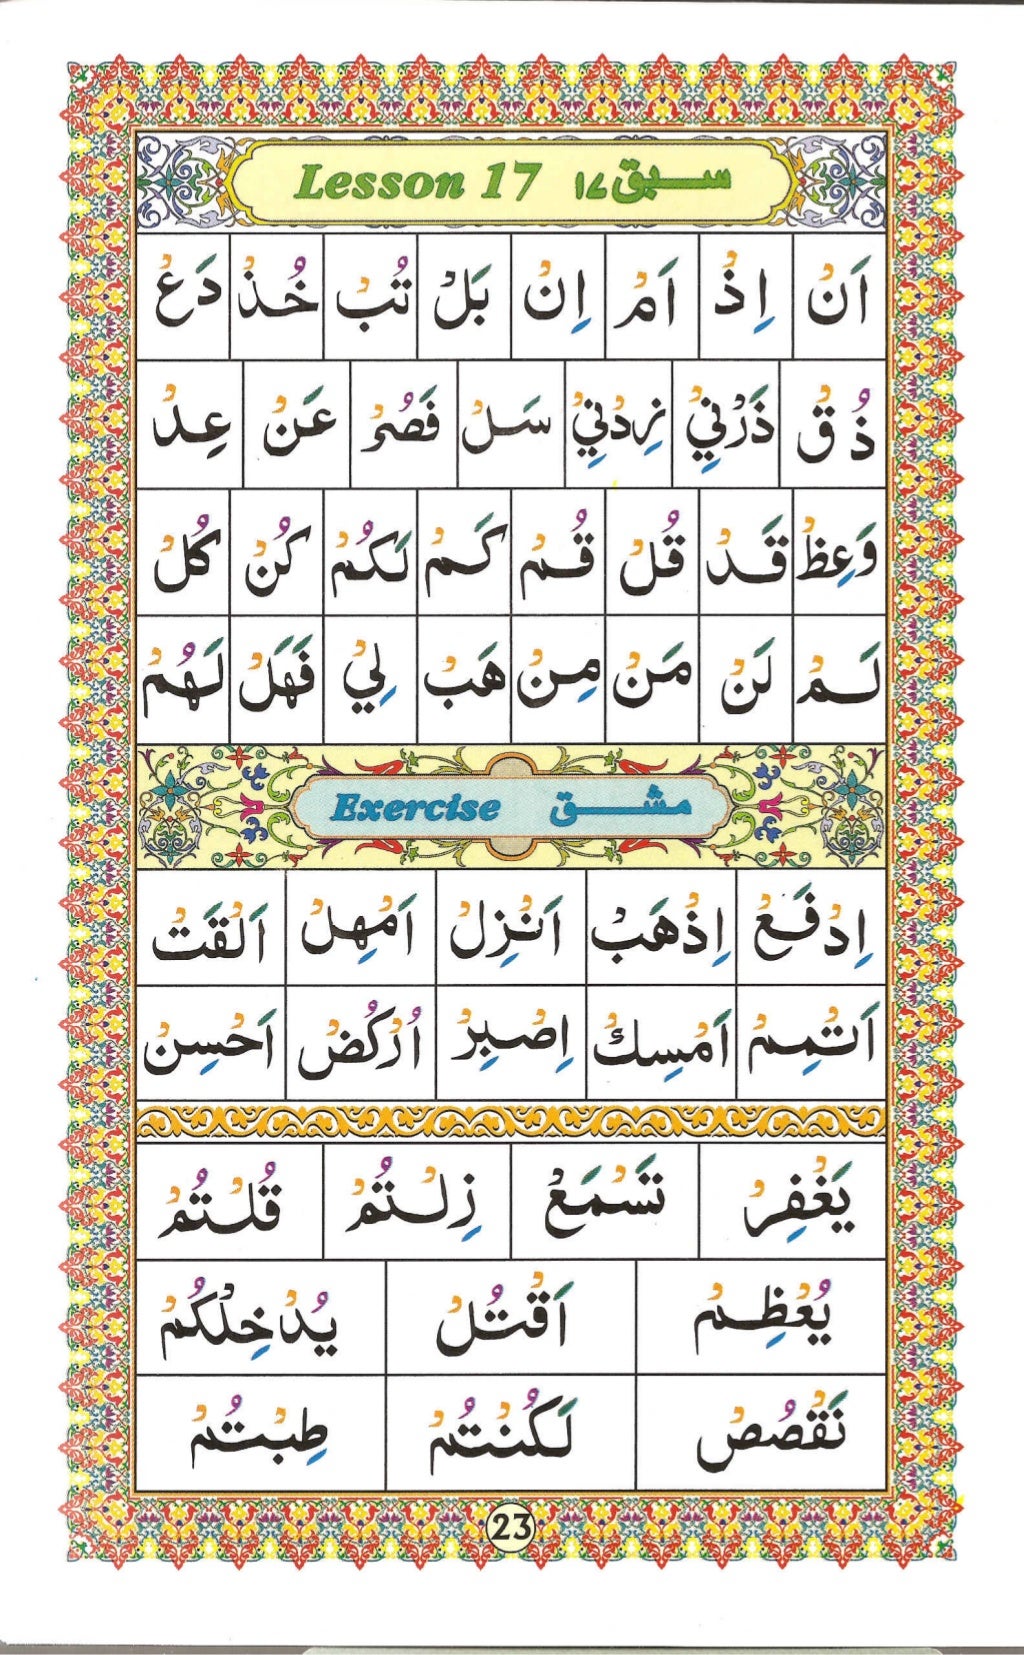 Lesson 17 سبق ۱۷
اَنْ اِذْ اَمْ اِنْ بَلْ تُبْ خُذْ دَعْ
ذُقْ ذَرْنِيْ زِدْنِيْ سَلْ فَصُمْ عَنْ عِدْ
وَعِظْ قَدْ قُلْ قُمْ كَمْ لَكُمْ كُنْ كُلْ
لَمْ لَنْ مَنْ مِنْ هَبْ لِيْ فَهَلْ لَهُمْ
Exercise مشق
اِدْفَعْ اِذْهَبْ اَنْزِلْ اَمْهِلْ اَلْقَتْ
اَتْمِمْ اَمْسِكْ اِصْبِرْ اُرْكُضْ اَحْسِنْ
يَغْفِرْ تَسْمَعْ زِلْتُمْ قُلْتُمْ
يُعْظِمْ اَقْتُلْ يُدْخِلْكُمْ
نَقْصُصْ لَكُنْتُمْ طِبْتُمْ
23